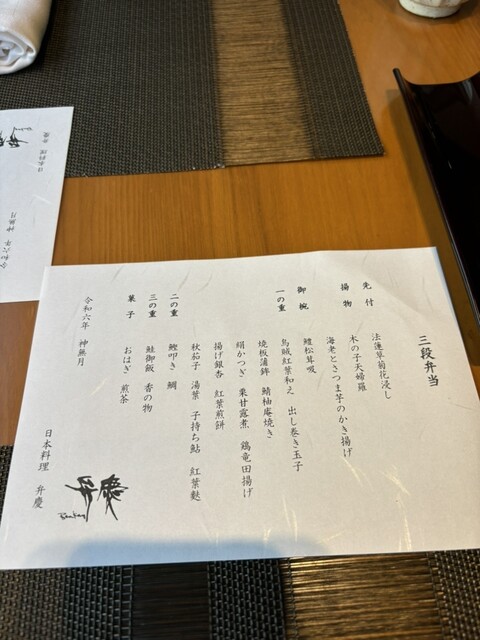 三段弁当
先付
法蓮草菊花浸し
揚物
木の子天婦羅
海老とさつま芋のかき揚げ
御椀
鱧松茸吸
一の重
烏賊紅葉和え 出し巻き玉子
焼板蒲鉾 鯖柚庵焼き
絹かつぎ 栗甘露煮 鶏竜田揚げ
揚げ銀杏 紅葉煎餅
秋茄子 湯葉 子持ち鮎 紅葉麩
二の重
鰹叩き 鯛
三の重
鮭御飯 香の物
菓子
おはぎ 煎茶
令和六年 神無月
日本料理 弁慶
弁慶
Benkay
日本料理 弁慶
令和六年 神無月